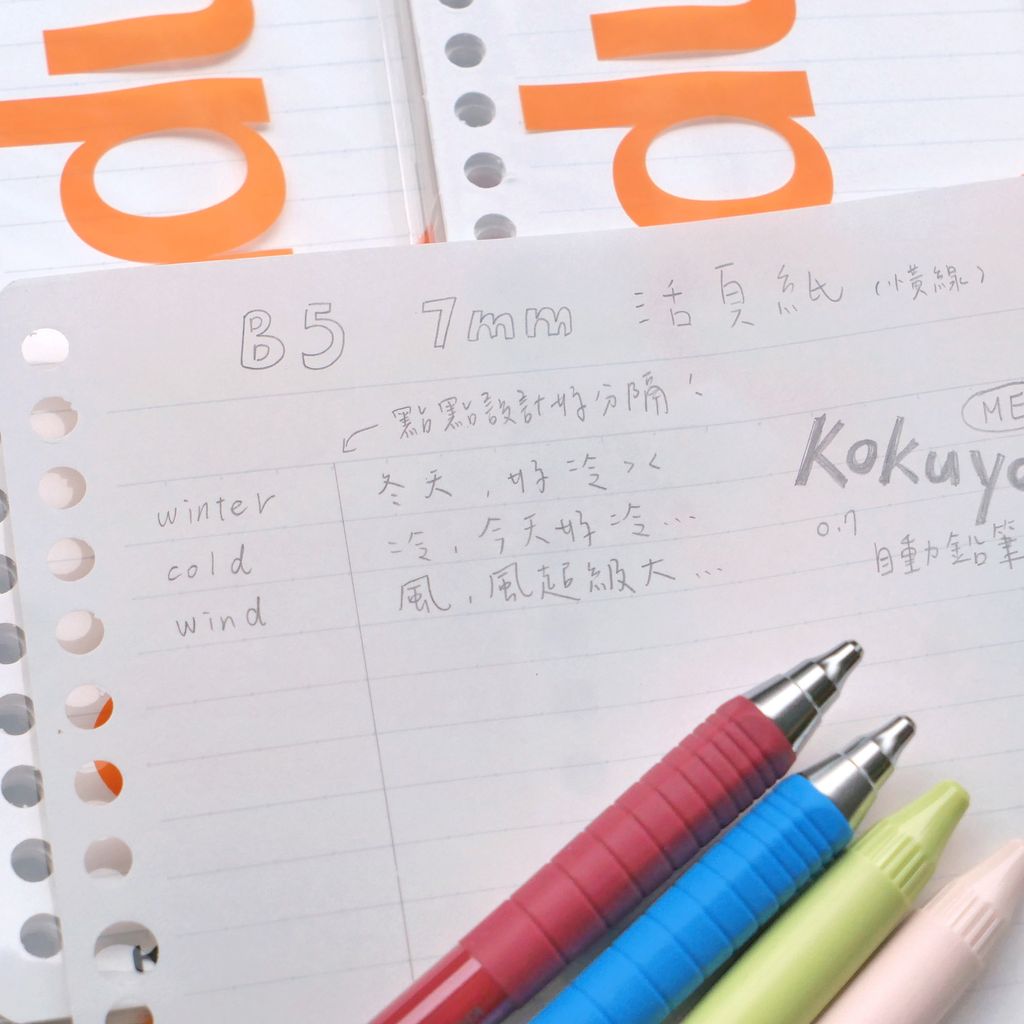 B5 7mm 活頁紙 (橫線)
點點設計好分隔!
ME
Kokuyo
0.7
自動鉛筆
winter 冬天,好冷><
cold 冷,今天好冷...
wind 風,風超級大...